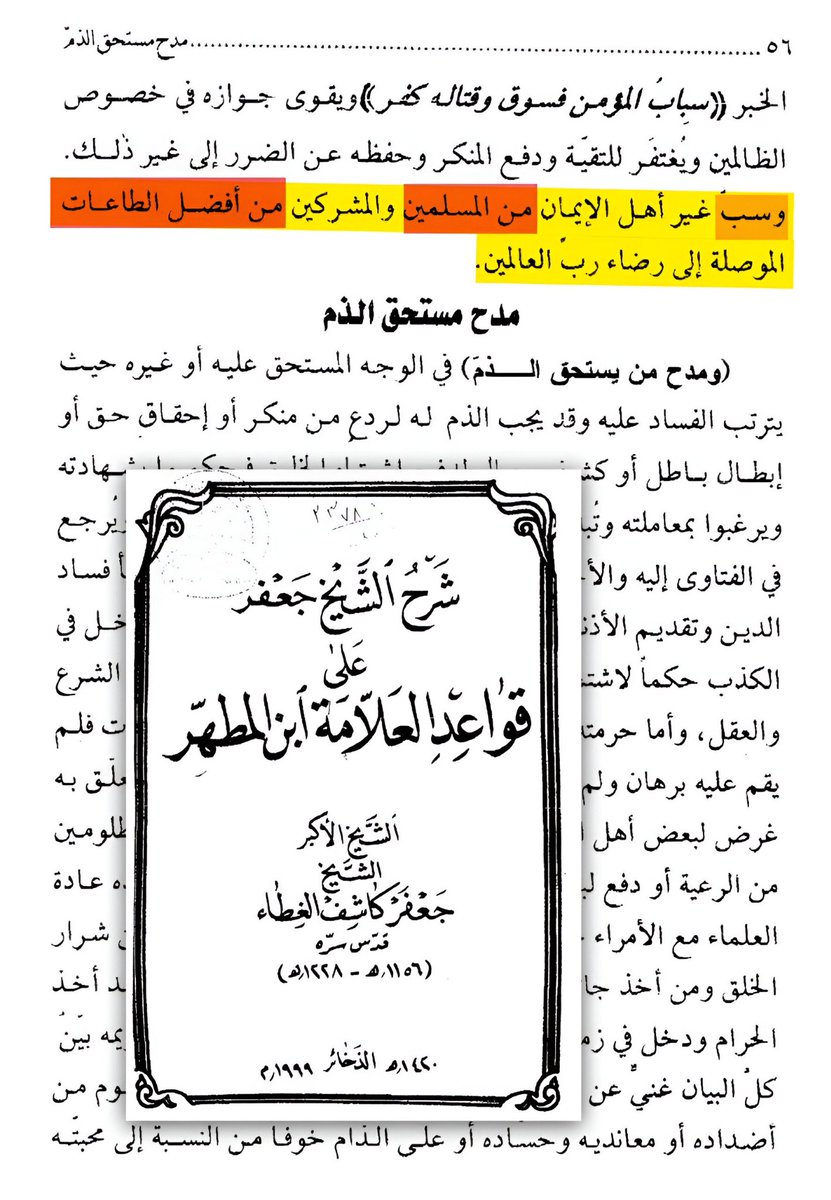 ٥٦ ........ مدح مستحق الذمّ
الخبر ((سبابُ المؤمن فسوق وقتاله كفر)) ويقوى جوازه في خصوص
الظالمين ويُغتفَر للتقيّة ودفع المنكر وحفظه عن الضرر إلى غير ذلك.
وسبّ غير أهل الإيمان من المسلمين والمشركين من أفضل الطاعات
الموصلة إلى رضاء ربّ العالمين.
مدح مستحق الذم
(ومدح من يستحق الذمّ) في الوجه المستحق عليه أو غيره حيث
يترتب الفساد عليه وقد يجب الذم له لردع من منكر أو إحقاق حق أو
إبطال باطل أو
ويرغبوا بمعاملته يُرجع
في الفتاوى إليه فساد
الدين وتقديم في
الكذب حكماً الشرع
والعقل، وأما حرمته فلم
يقم عليه برهان ولم به
غرض لبعض أهل
من الرعية أو دفع عادة
العلماء مع الأمراء شرار
الخلق ومن أخذ أخذ
الحرام ودخل في بيّنُ
كلُّ البيان غنيٌّ عن من
أضداده أو معانديه وحسّاده أو على الذام خوفا من النسبة إلى محبّته
٢٣٧٨
شَرْحُ الشَّيْخ جَعْفَر
عَلىٰ
قَوَاعِدِ العَلاّمَة ابن المطهّر
الشَّيخ الأكبر
الشَّيخ
جَعْفَر كَاشِف الغِطَاء
قدّس سرّه
(١١٥٦هـ - ١٢٢٨هـ)
١٤٢٠هـ الذخائر ١٩٩٩م